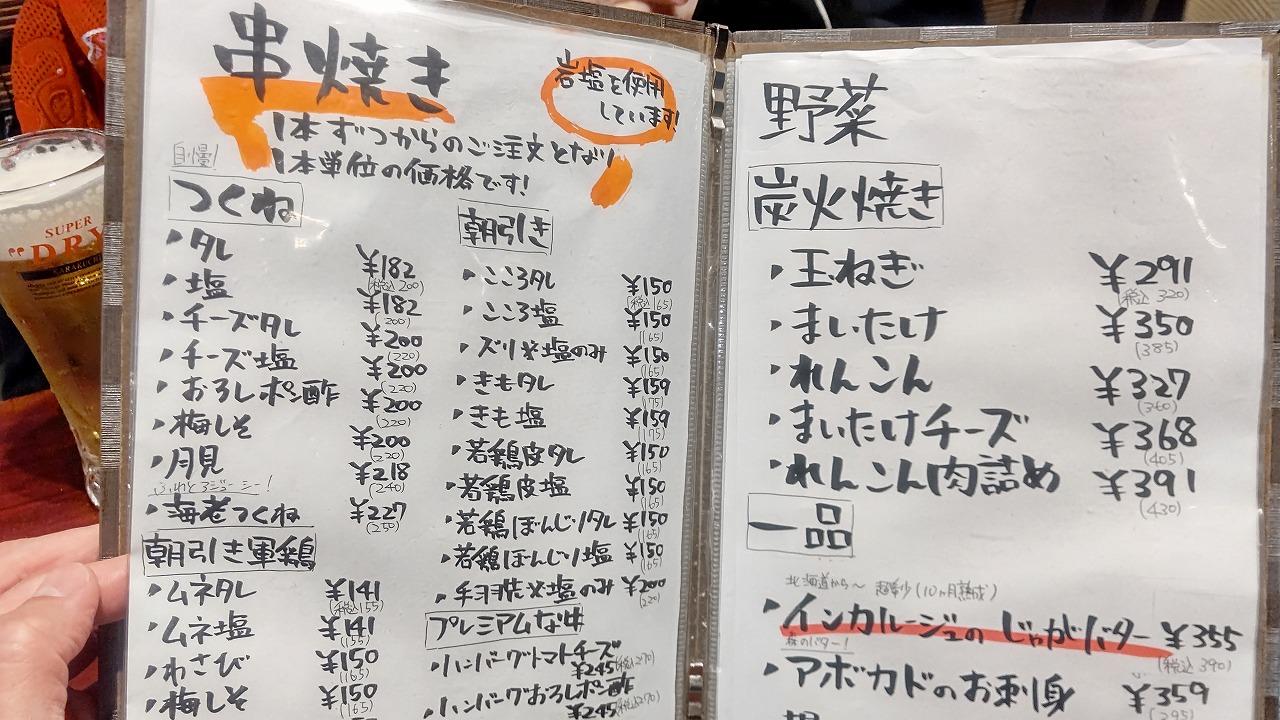 串焼き
岩塩を使用
しています!
1本ずつからのご注文となり
1本単位の価格です!
自慢!
つくね
・タレ ¥182
(税込200)
・塩 ¥182
(200)
・チーズタレ ¥200
(220)
・チーズ塩 ¥200
(220)
・おろしポン酢 ¥200
(220)
・梅しそ ¥200
(220)
・月見 ¥218
(240)
ふわとろジューシー!
・海老つくね ¥227
(250)
朝引き軍鶏
・ムネタレ ¥141
(税込155)
・ムネ塩 ¥141
(155)
・わさび ¥150
(165)
・梅しそ ¥150
(165)
朝引き
・こころタレ ¥150
(税込165)
・こころ塩 ¥150
(165)
・ズリ※塩のみ ¥150
(165)
・きもタレ ¥159
(175)
・きも塩 ¥159
(175)
・若鶏皮タレ ¥150
(165)
・若鶏皮塩 ¥150
(165)
・若鶏ぼんじりタレ ¥150
(165)
・若鶏ぼんじり塩 ¥150
(165)
・チョヨ焼※塩のみ ¥200
(220)
プレミアムな串
・ハンバーグトマトチーズ
¥245(税込270)
・ハンバーグおろしポン酢
¥245(税込270)
野菜
炭火焼き
・玉ねぎ ¥291
(税込 320)
・まいたけ ¥350
(385)
・れんこん ¥327
(360)
・まいたけチーズ ¥368
(405)
・れんこん肉詰め ¥391
(430)
一品
北海道から〜 (10ヵ月熟成)
・インカルージュのじゃがバター ¥355
(税込 390)
森のバター!
・アボカドのお刺身 ¥359
(395)
SUPER
"DRY
KARAKUCHI